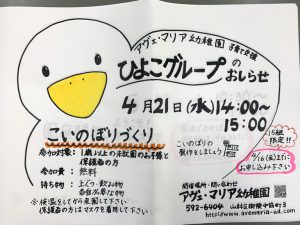 アヴェ・マリア幼稚園 子育て支援
ひよこグループの
おしらせ
4月21日(水)14:00~
15:00
こいのぼりづくり
参加対象: 1歳以上の未就園のお子様と
保護者の方
参加費: 無料
持ち物: 上ぐつ・飲み物
各自必要な物
※検温をしてから来園して下さい
保護者の方はマスクを着用して下さい
こいのぼりの
製作をしましょう
15組限定!!
4/16(金)までに
お申し込み下さい
開催場所・問い合わせ
アヴェ・マリア幼稚園
592-6404 山科区御陵中筋町3
http://www.avemaria-ed.com/